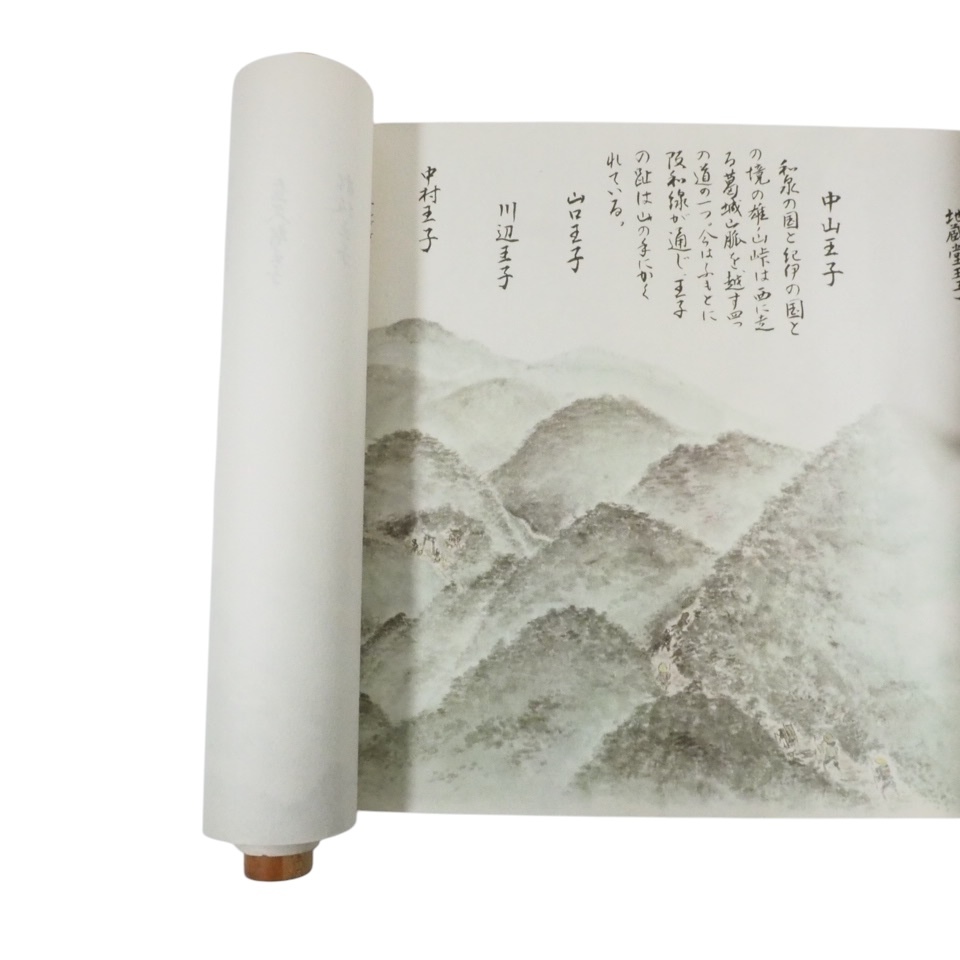 地蔵堂王子
中山王子
和泉の国と紀伊の国と
の境の雄ノ山峠は西に走
る葛城山脈を越す四つ
の道の一つ。今はふもとに
阪和線が通じ王子
の趾は山の手にかく
れている。
山口王子
川辺王子
中村王子